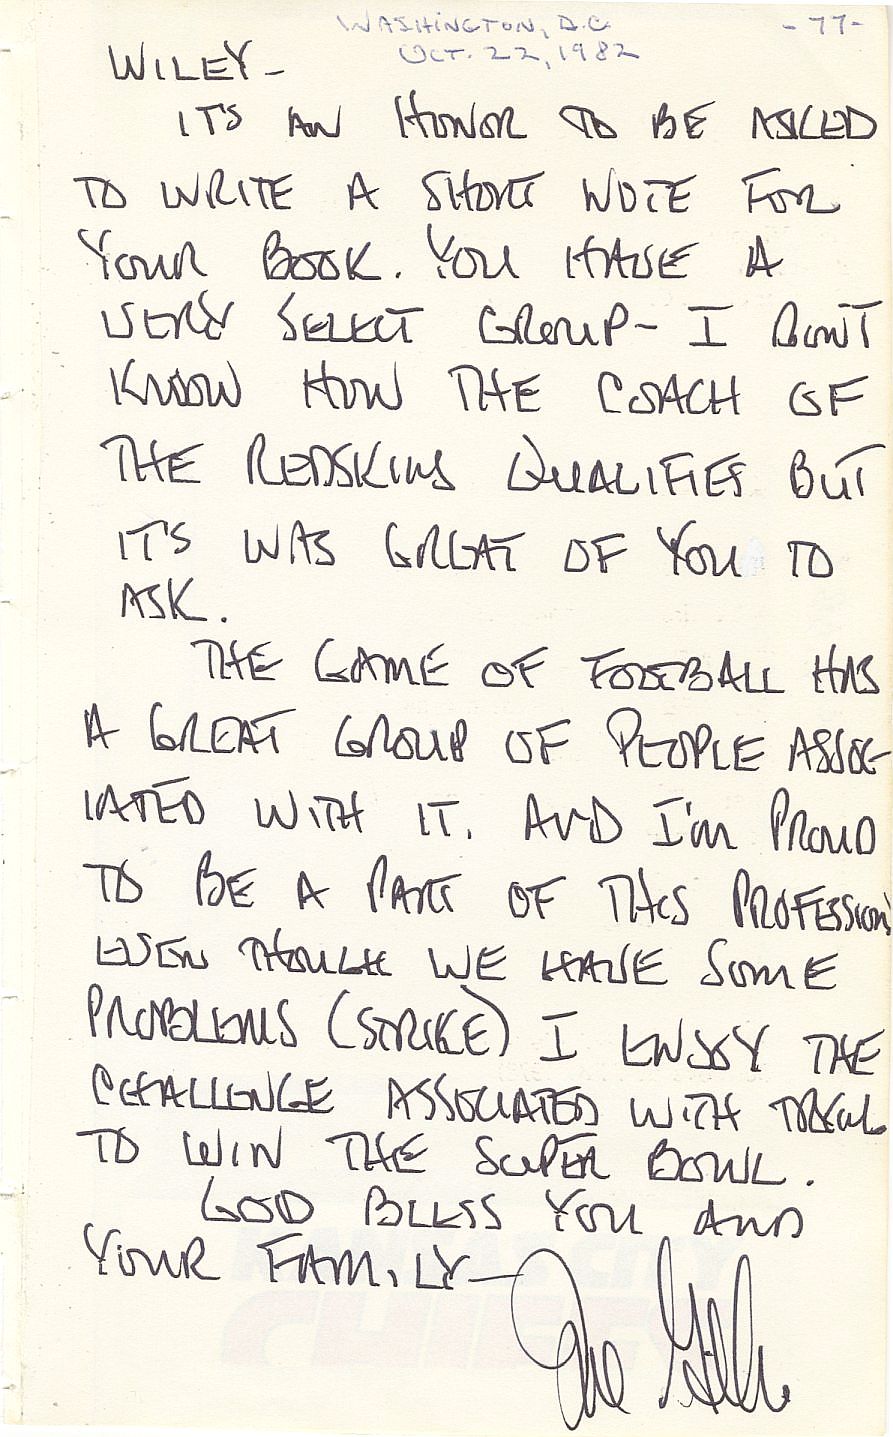 WASHINGTON, D.C. -77-
OCT. 22, 1982
WILEY-
IT'S AN HONOR TO BE ASKED
TO WRITE A SHORT NOTE FOR
YOUR BOOK. YOU HAVE A
VERY SELECT GROUP- I DON'T
KNOW HOW THE COACH OF
THE REDSKINS QUALIFIES BUT
IT'S WAS GREAT OF YOU TO
ASK.
THE GAME OF FOOTBALL HAS
A GREAT GROUP OF PEOPLE ASSOC-
IATED WITH IT. AND I'm PROUD
TO BE A PART OF THIS PROFESSION
EVEN THOUGH WE HAVE SOME
PROBLEMS (STRIKE) I ENJOY THE
CHALLENGE ASSOCIATED WITH
TO WIN THE SUPER BOWL.
GOD BLESS YOU AND
YOUR FAMILY- Joe Gibbs
KANSAS CITY
CHIEFS